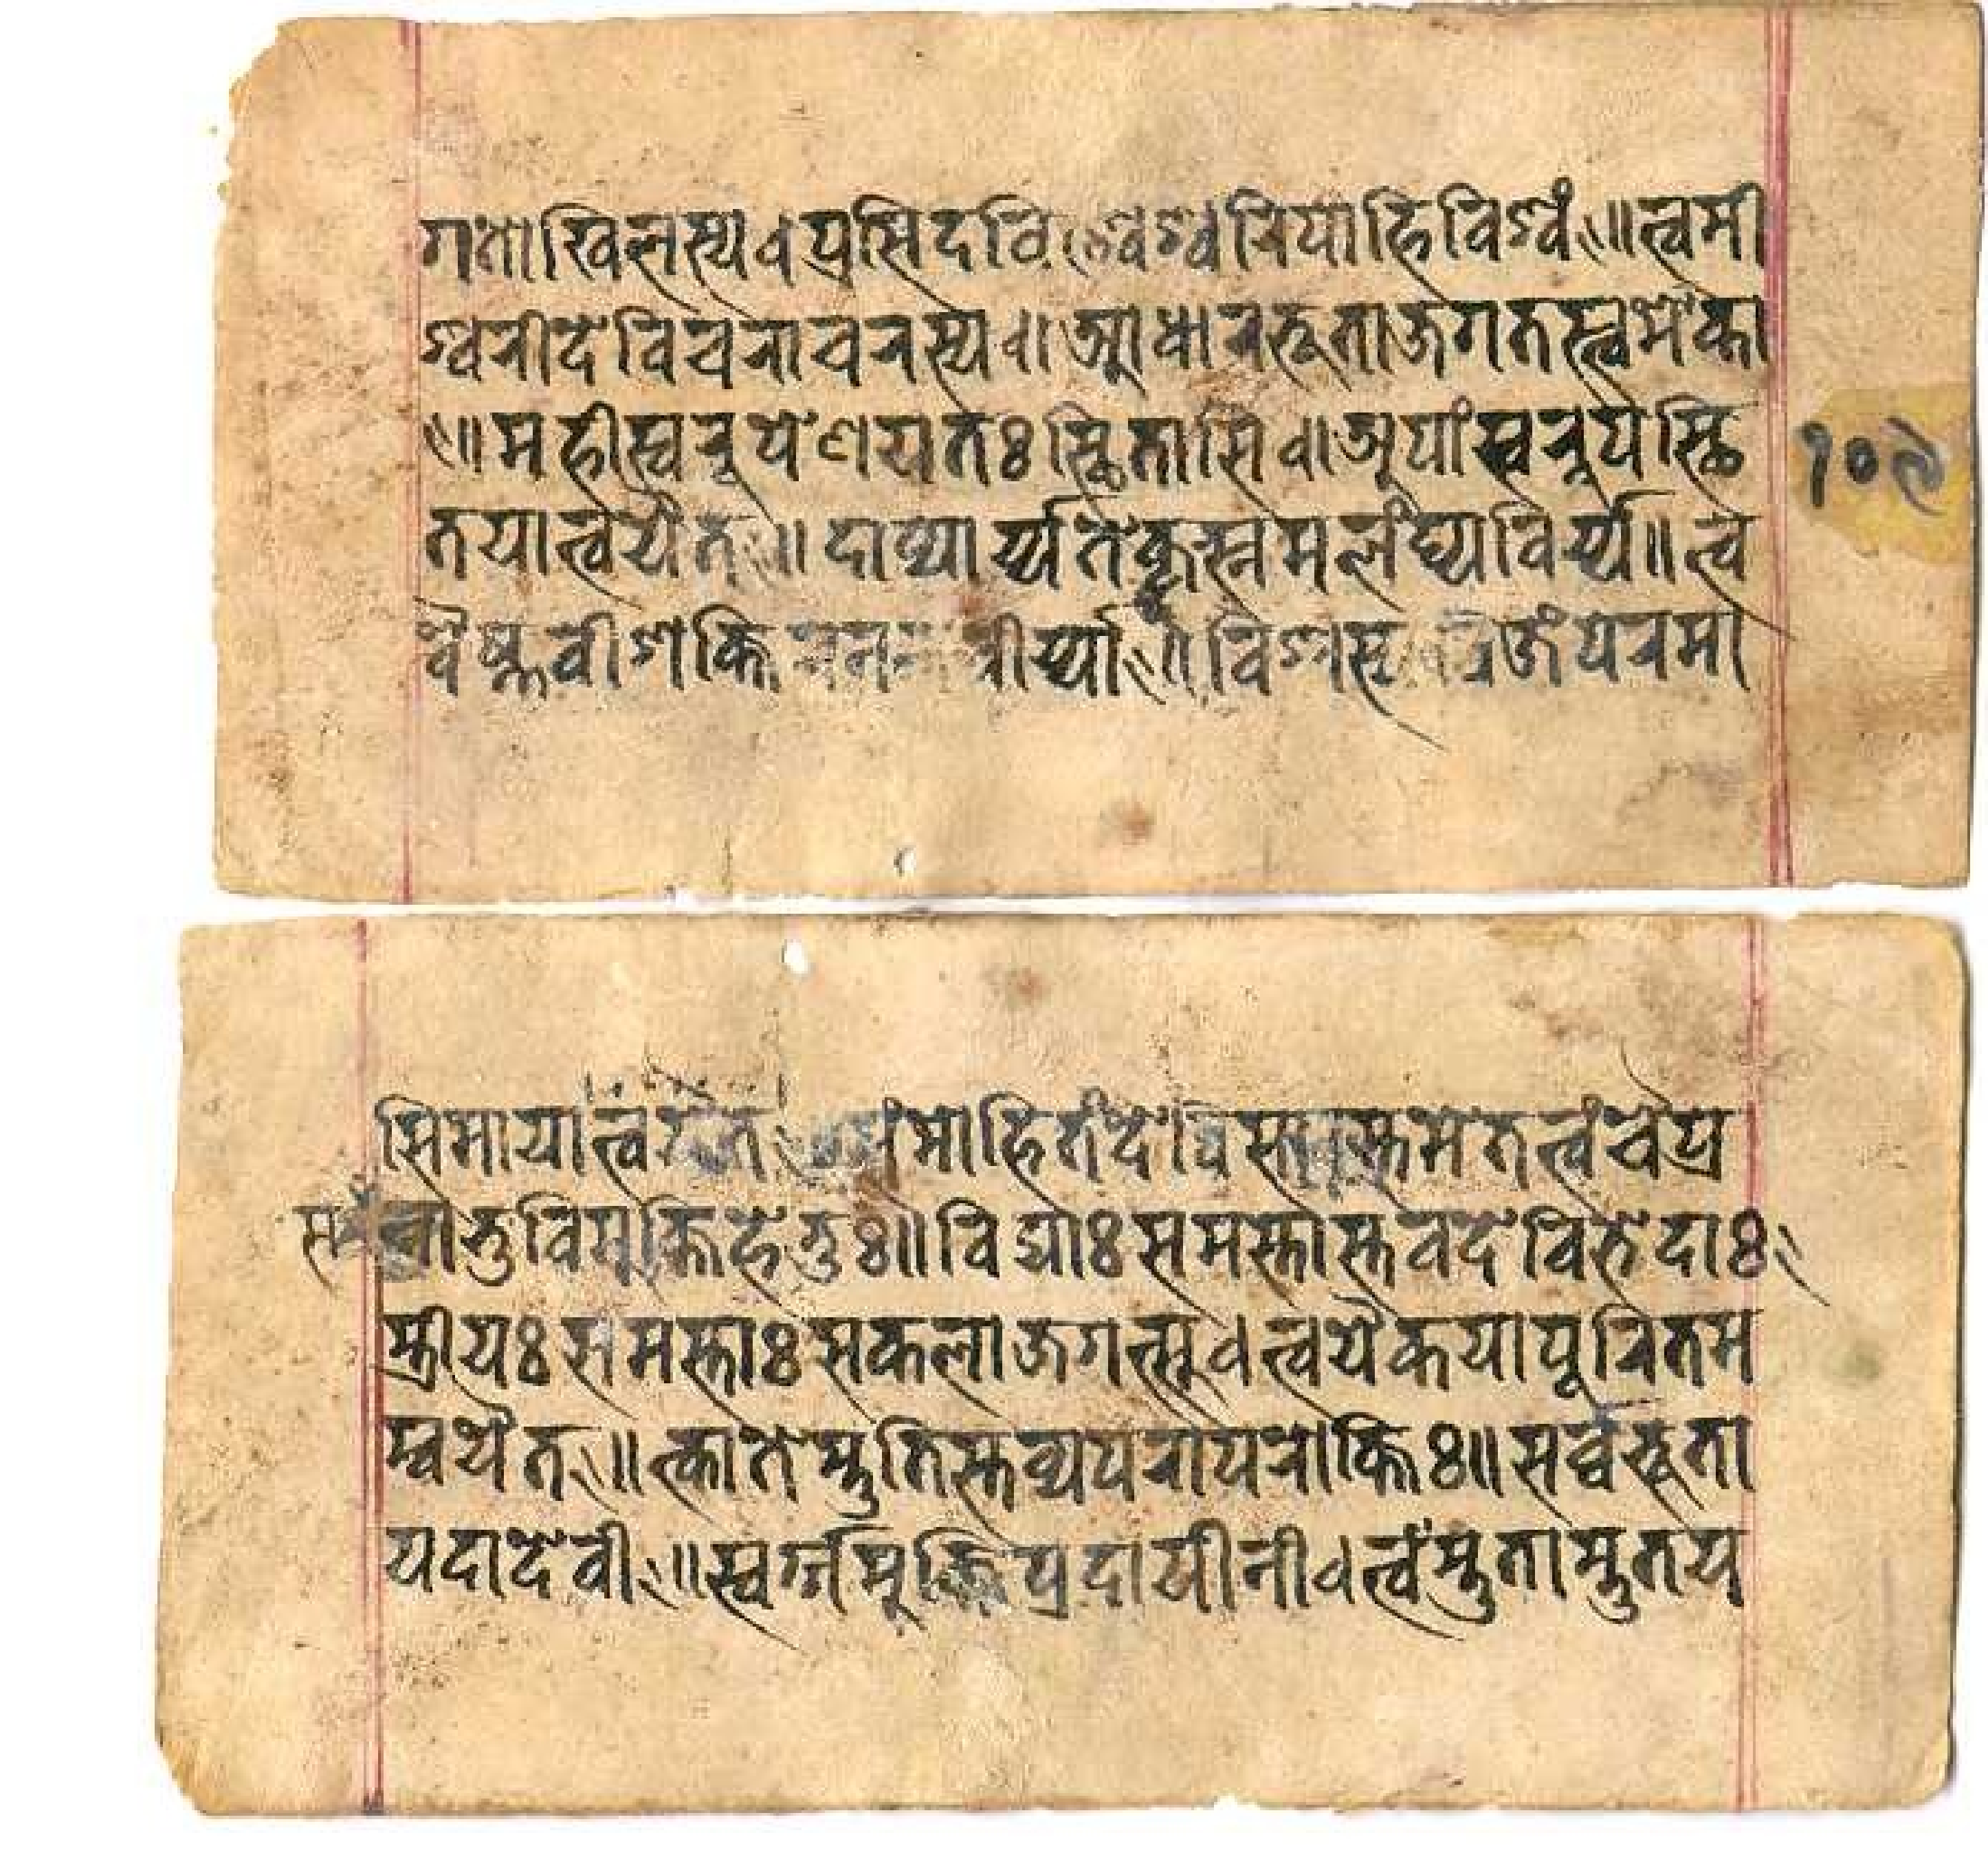 गतोखिलस्य। प्रसिद विश्वेश्वरि पाहि विश्वं॥ त्वमी
श्वरी देवि चराचरस्य॥ आधारभूता जगतस्त्वमेका
॥ महीस्वरूपेण यतः स्थितासि॥ अपां स्वरूपे स्थि
तया त्वयैत॥ दाप्यार्य्यते कृत्स्नमलंघ्यविर्य्ये॥ त्वं
वैष्णवी शक्ति वीर्य्या॥ विश्वस्य बीजं परमा
सि माया त्वयैत संमोहितं देवि समस्तमेतत् त्वं वै प्र
सन्ना भुवि मूक्तिहेतुः॥ विद्याः समस्तास्तव देवि भेदाः
स्त्रीयः समस्ताः सकला जगत्सू। त्वयैकया पूरितम
म्वयैत॥ त्का ते स्तुति स्तव्यपरापरोक्तिः॥ सर्व्वभूता
यदा देवी॥ स्वर्ग्गमूक्तिप्रदायीनी। त्वं स्तुता स्तुतय
१०९